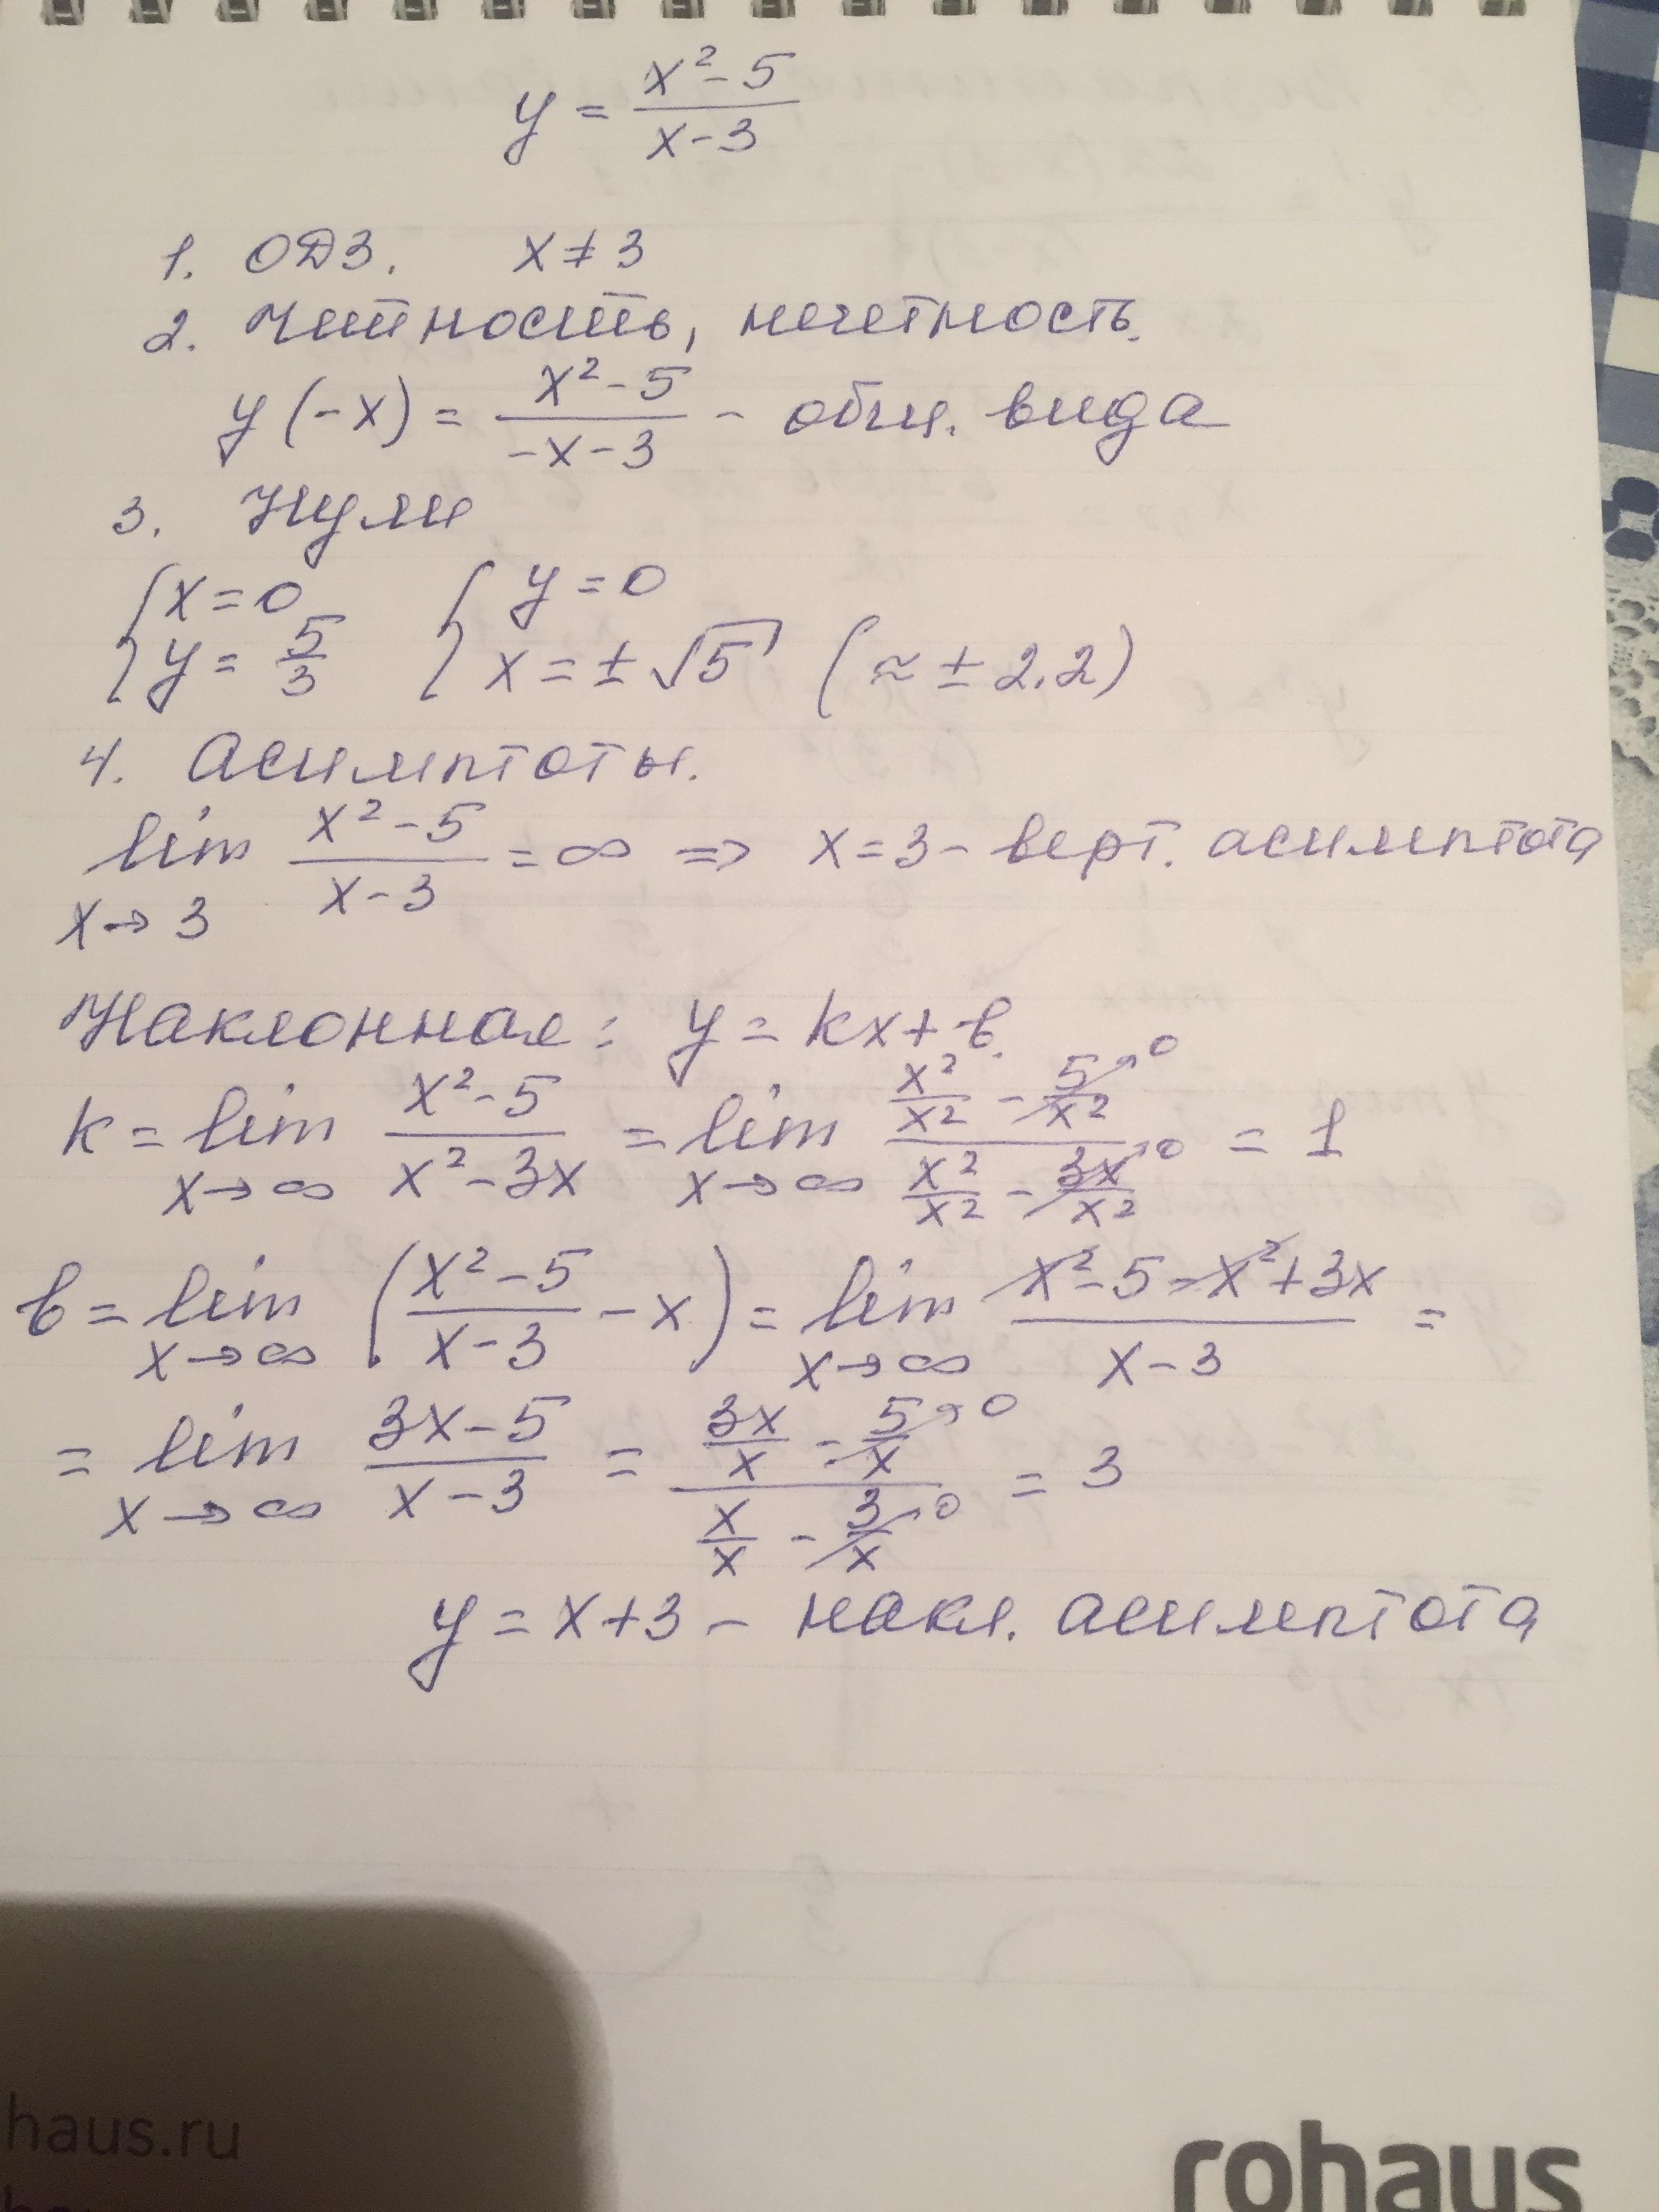 y = (x² - 5)/(x - 3)
1. ОДЗ. x ≠ 3
2. Четность, нечетность.
y(-x) = (x² - 5)/(-x - 3) - общ. вида
3. Нули
{ x = 0 { y = 0
{ y = 5/3 { x = ± √5 (≈ ± 2,2)
4. Асимптоты.
lim x→3 (x² - 5)/(x - 3) = ∞ => x = 3 - верт. асимптота
Наклонная: y = kx + b.
k = lim x→∞ (x² - 5)/(x² - 3x) = lim x→∞ (x²/x² - 5/x² →0)/(x²/x² - 3x/x² →0) = 1
b = lim x→∞ ((x² - 5)/(x - 3) - x) = lim x→∞ (x² - 5 - x² + 3x)/(x - 3) =
= lim x→∞ (3x - 5)/(x - 3) = (3x/x - 5/x →0)/(x/x - 3/x →0) = 3
y = x + 3 - накл. асимптота
haus.ru
rohaus